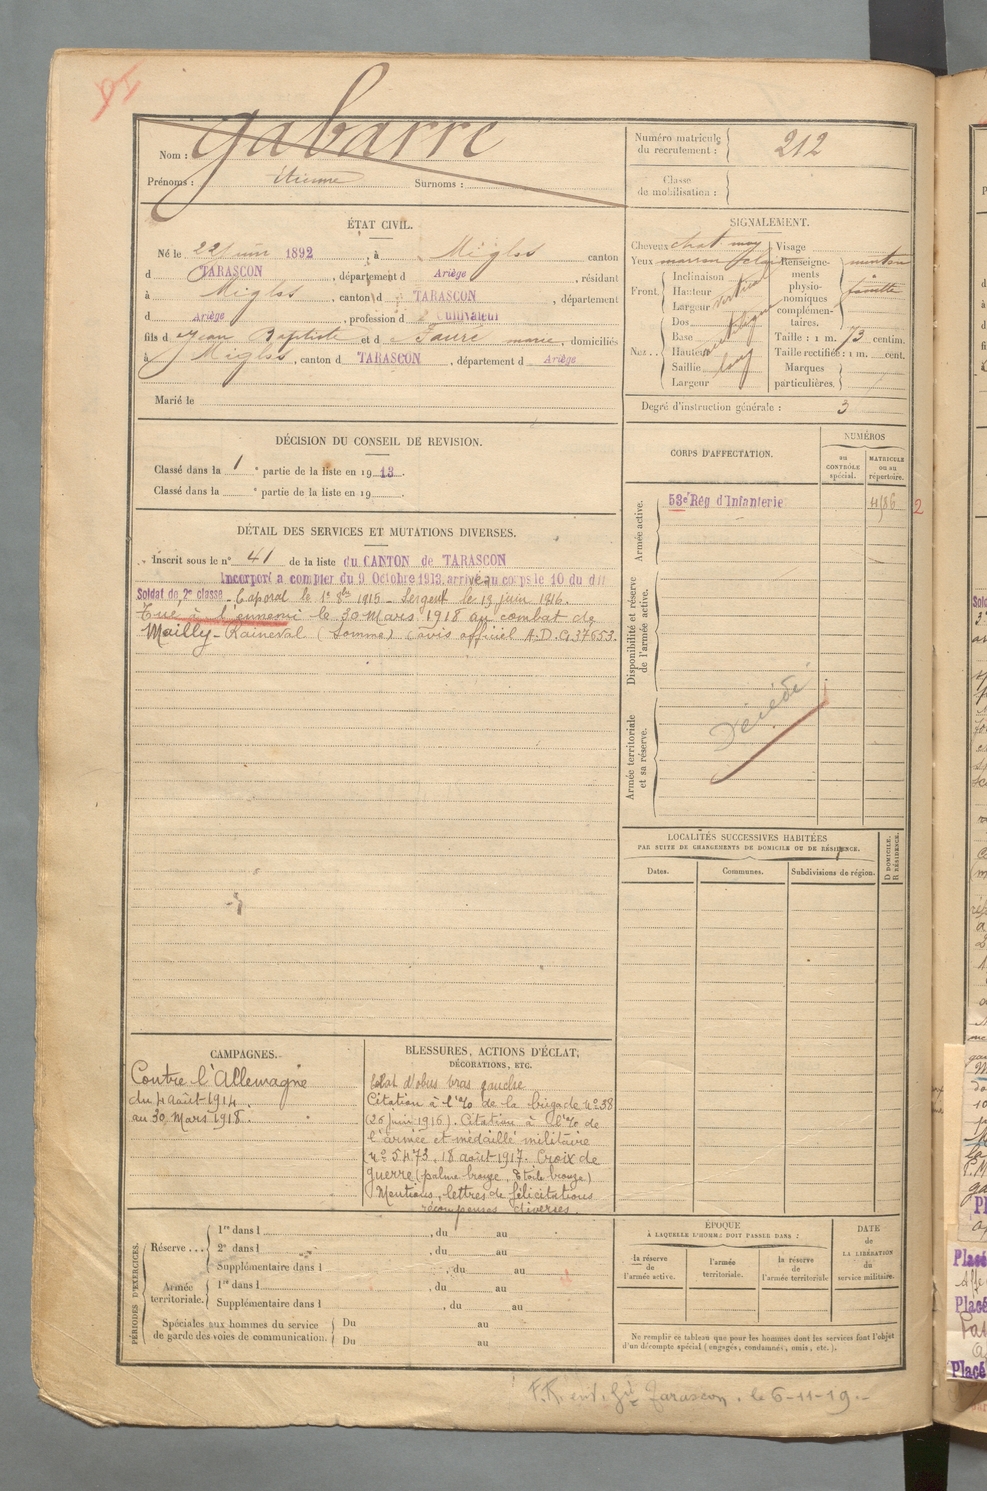 Nom : Gabarre
Prénoms : étienne Surnoms :
Numéro matricule du recrutement : 212
Classe de mobilisation :
ÉTAT CIVIL.
Né le 22 juin 1892, à Miglos canton
d TARASCON, département d Ariège, résidant
à Miglos, canton d TARASCON, département
d Ariège, profession d Cultivateur
fils d Jean Baptiste et d Fauré marie, domiciliés
à Miglos, canton d TARASCON, département d Ariège
Marié le
SIGNALEMENT.
Cheveux chat moy
Yeux marron clair
Front. Inclinaison vertical
Hauteur
Largeur
Nez.. Dos rectiligne
Base
Hauteur
Saillie
Largeur
Visage
Renseignements physionomiques complémentaires. menton
Taille : 1 m. 73 centim.
Taille rectifiée : 1 m. cent.
Marques particulières.
Degré d'instruction générale : 3
DÉCISION DU CONSEIL DE REVISION.
Classé dans la 1e partie de la liste en 1913.
Classé dans la e partie de la liste en 19
CORPS D'AFFECTATION.
NUMÉROS
au CONTRÔLE spécial.
MATRICULE ou au répertoire.
Armée active.
53e Rég d'Infanterie
2
Disponibilité et réserve de l'armée active.
Armée territoriale et sa réserve.
Décédé
DÉTAIL DES SERVICES ET MUTATIONS DIVERSES.
Inscrit sous le n° 41 de la liste du CANTON de TARASCON
Incorporé à compter du 9 Octobre 1913, arrivé au corps le 10 du dit
Soldat de 2e classe - Caporal le 1er 8bre 1915 - Sergent le 13 juin 1916.
Tué à l'ennemi le 30 Mars 1918 au combat de
Mailly-Raineval (Somme) (avis officiel A.D.G.37653.
LOCALITÉS SUCCESSIVES HABITÉES
PAR SUITE DE CHANGEMENTS DE DOMICILE OU DE RÉSIDENCE.
Dates.
Communes.
Subdivisions de région.
D DOMICILE.
R RÉSIDENCE.
CAMPAGNES.
Contre l'Allemagne
du 4 août 1914
au 30 Mars 1918.
BLESSURES, ACTIONS D'ÉCLAT,
DÉCORATIONS, ETC.
Eclat d'obus bras gauche
Citation à l'% de la brigade n° 38
(26 juin 1916). Citation à l'% de
l'armée et médaille militaire
n° 5473, 18 août 1917. Croix de
guerre (palme bronze, étoile bronze)
Mentions, lettres de félicitations
récompenses diverses.
PÉRIODES D'EXERCICES.
Réserve...
1re dans l , du au
2e dans l , du au
Supplémentaire dans l , du au
Armée territoriale.
1re dans l , du au
Supplémentaire dans l , du au
Spéciales aux hommes du service de garde des voies de communication.
Du au
Du au
ÉPOQUE
À LAQUELLE L'HOMME DOIT PASSER DANS :
la réserve de l'armée active.
l'armée territoriale.
la réserve de l'armée territoriale
DATE de LA LIBÉRATION du service militaire.
Ne remplir ce tableau que pour les hommes dont les services font l'objet
d'un décompte spécial (engagés, condamnés, omis, etc.).
Tarascon, le 6-11-19.-